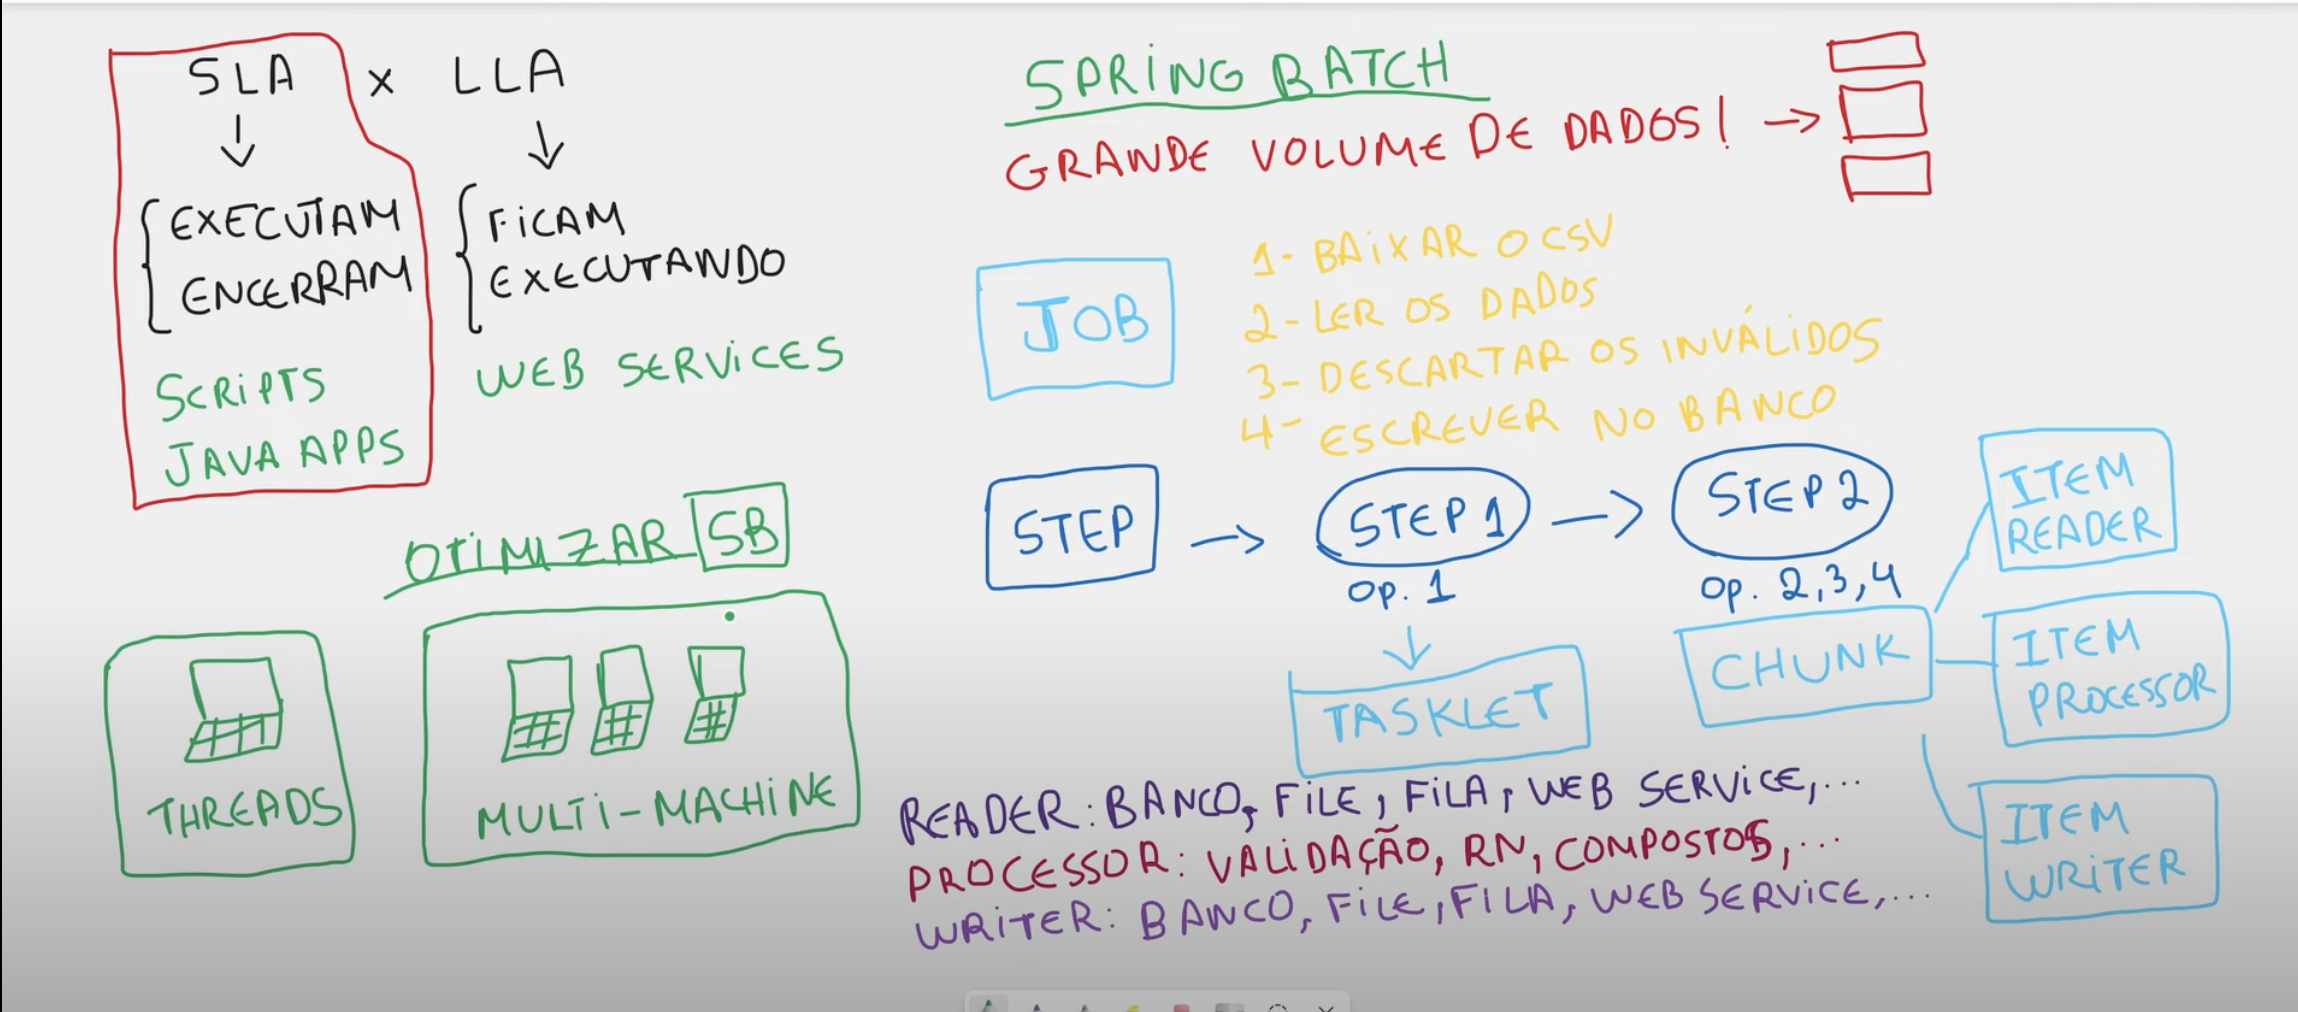 SLA x LLA
EXECUTAM
ENCERRAM
FICAM
EXECUTANDO
SCRIPTS
JAVA APPS
WEB SERVICES
OTIMIZAR SB
THREADS
MULTI-MACHINE
SPRING BATCH
GRANDE VOLUME DE DADOS!
JOB
1- BAIXAR O CSV
2- LER OS DADOS
3- DESCARTAR OS INVÁLIDOS
4- ESCREVER NO BANCO
STEP
STEP 1
STEP 2
OP. 1
OP. 2,3,4
TASKLET
CHUNK
ITEM
READER
ITEM
PROCESSOR
ITEM
WRITER
READER: BANCO, FILE, FILA, WEB SERVICE,...
PROCESSOR: VALIDAÇÃO, RN, COMPOSTOS,...
WRITER: BANCO, FILE, FILA, WEB SERVICE,...